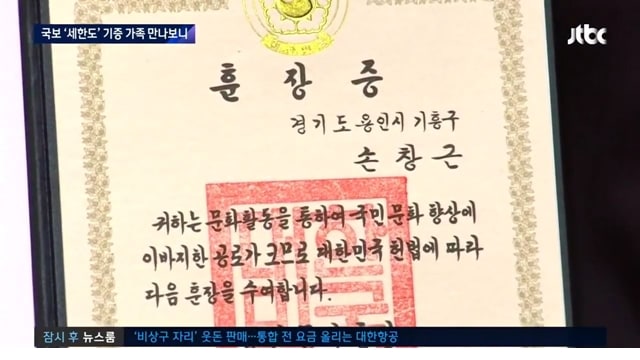 국보 '세한도' 기증 가족 만나보니
jtbc
훈장증
경기도 용인시 기흥구
손창근
귀하는 문화활동을 통하여 국민 문화 향상에
이바지한 공로가 크므로 대한민국 헌법에 따라
다음 훈장을 수여합니다.
잠시 후 뉴스룸 '비상구 자리' 웃돈 판매…통합 전 요금 올리는 대한항공